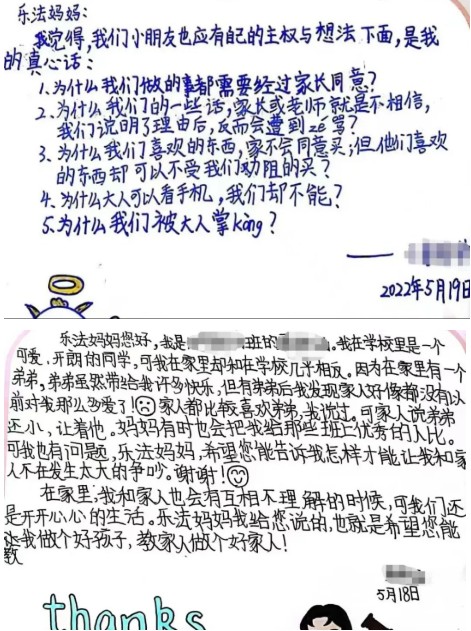 乐法妈妈:
我觉得,我们小朋友也应有自己的主权与想法下面,是我
的真心话:
1.为什么我们做的事都需要经过家长同意?
2.为什么我们的一些话,家长或老师就是不相信,
我们说明了理由后,反而会遭到zé骂?
3.为什么我们喜欢的东西,家不会同意买;但他们喜欢
的东西却可以不受我们劝阻的买?
4.为什么大人可以看手机,我们却不能?
5.为什么我们被大人掌kòng?
——
2022年5月19日
乐法妈妈您好,我是 班的 。我在学校里是一个
可爱、开朗的同学,可我在家里却和在学校几乎相反。因为在家里有一个
弟弟,弟弟虽然带给我许多快乐,但有弟弟后我发现家人好像都没有以
前对我那么多爱了!家人都比较喜欢弟弟,我说过。可家人说弟弟
还小,让着他。妈妈有时也会把我给那些班上优秀的人比。
可我也有问题,乐法妈妈,希望您能告诉我怎样才能让我和家
人不在发生太大的争吵。谢谢!
在家里,我和家人也会有互相不理解的时候,可我们还
是开开心心的生活。乐法妈妈我给您说的,也就是希望您能
让我做个好孩子,教家人做个好家人!
教
5月18日
thanks